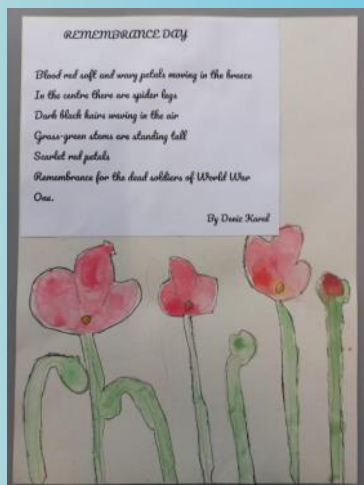 REMEMBRANCE DAY
Blood red soft and wavy petals moving in the breeze
In the centre there are spider legs
Dark black hairs waving in the air
Grass-green stems are standing tall
Scarlet red petals
Remembrance for the dead soldiers of World War
One.
By Deniz Karol